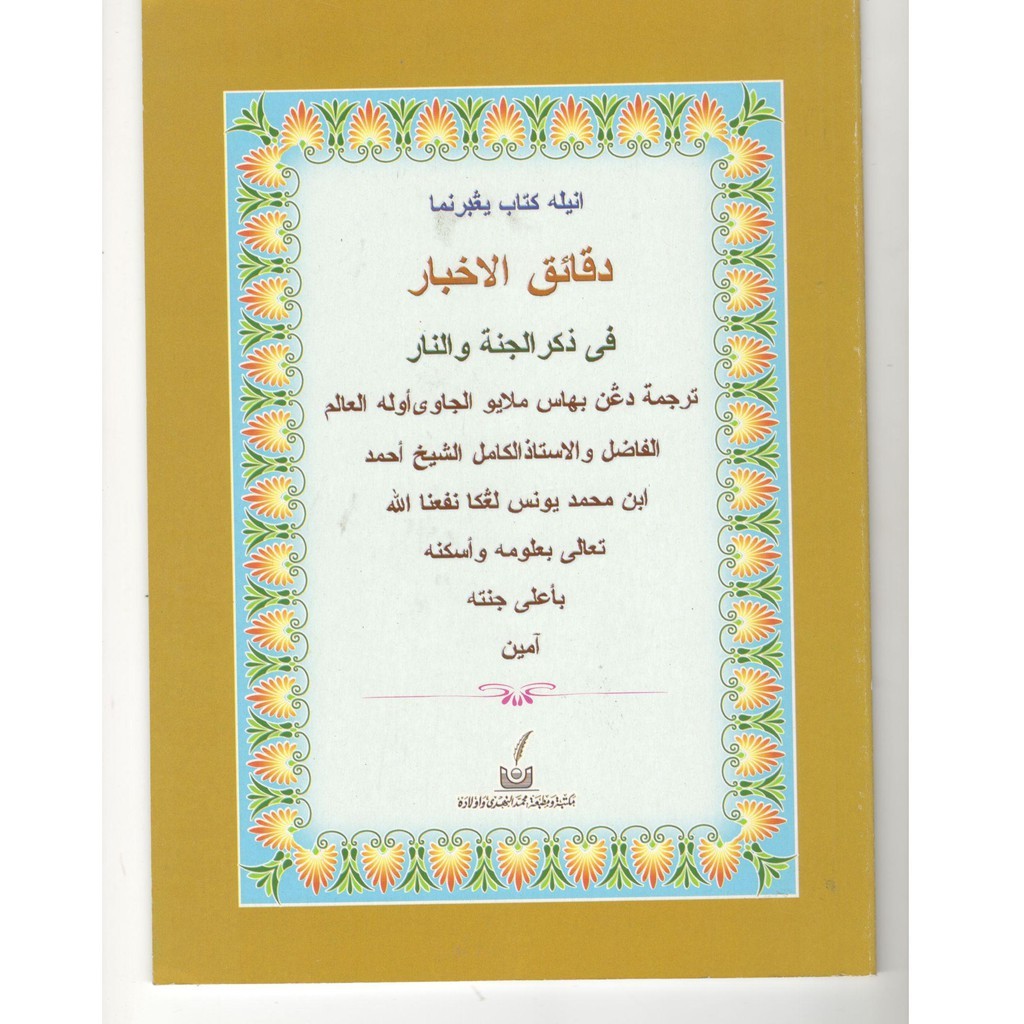 انيله كتاب يڠبرنما
دقائق الاخبار
فى ذكر الجنة والنار
ترجمة دڠن بهاس ملايو الجاوى أوله العالم
الفاضل والاستاذ الكامل الشيخ أحمد
ابن محمد يونس لڠكا نفعنا الله
تعالى بعلومه وأسكنه
بأعلى جنته
آمين
مكتبة ومطبعة محمد النهدى وأولاده